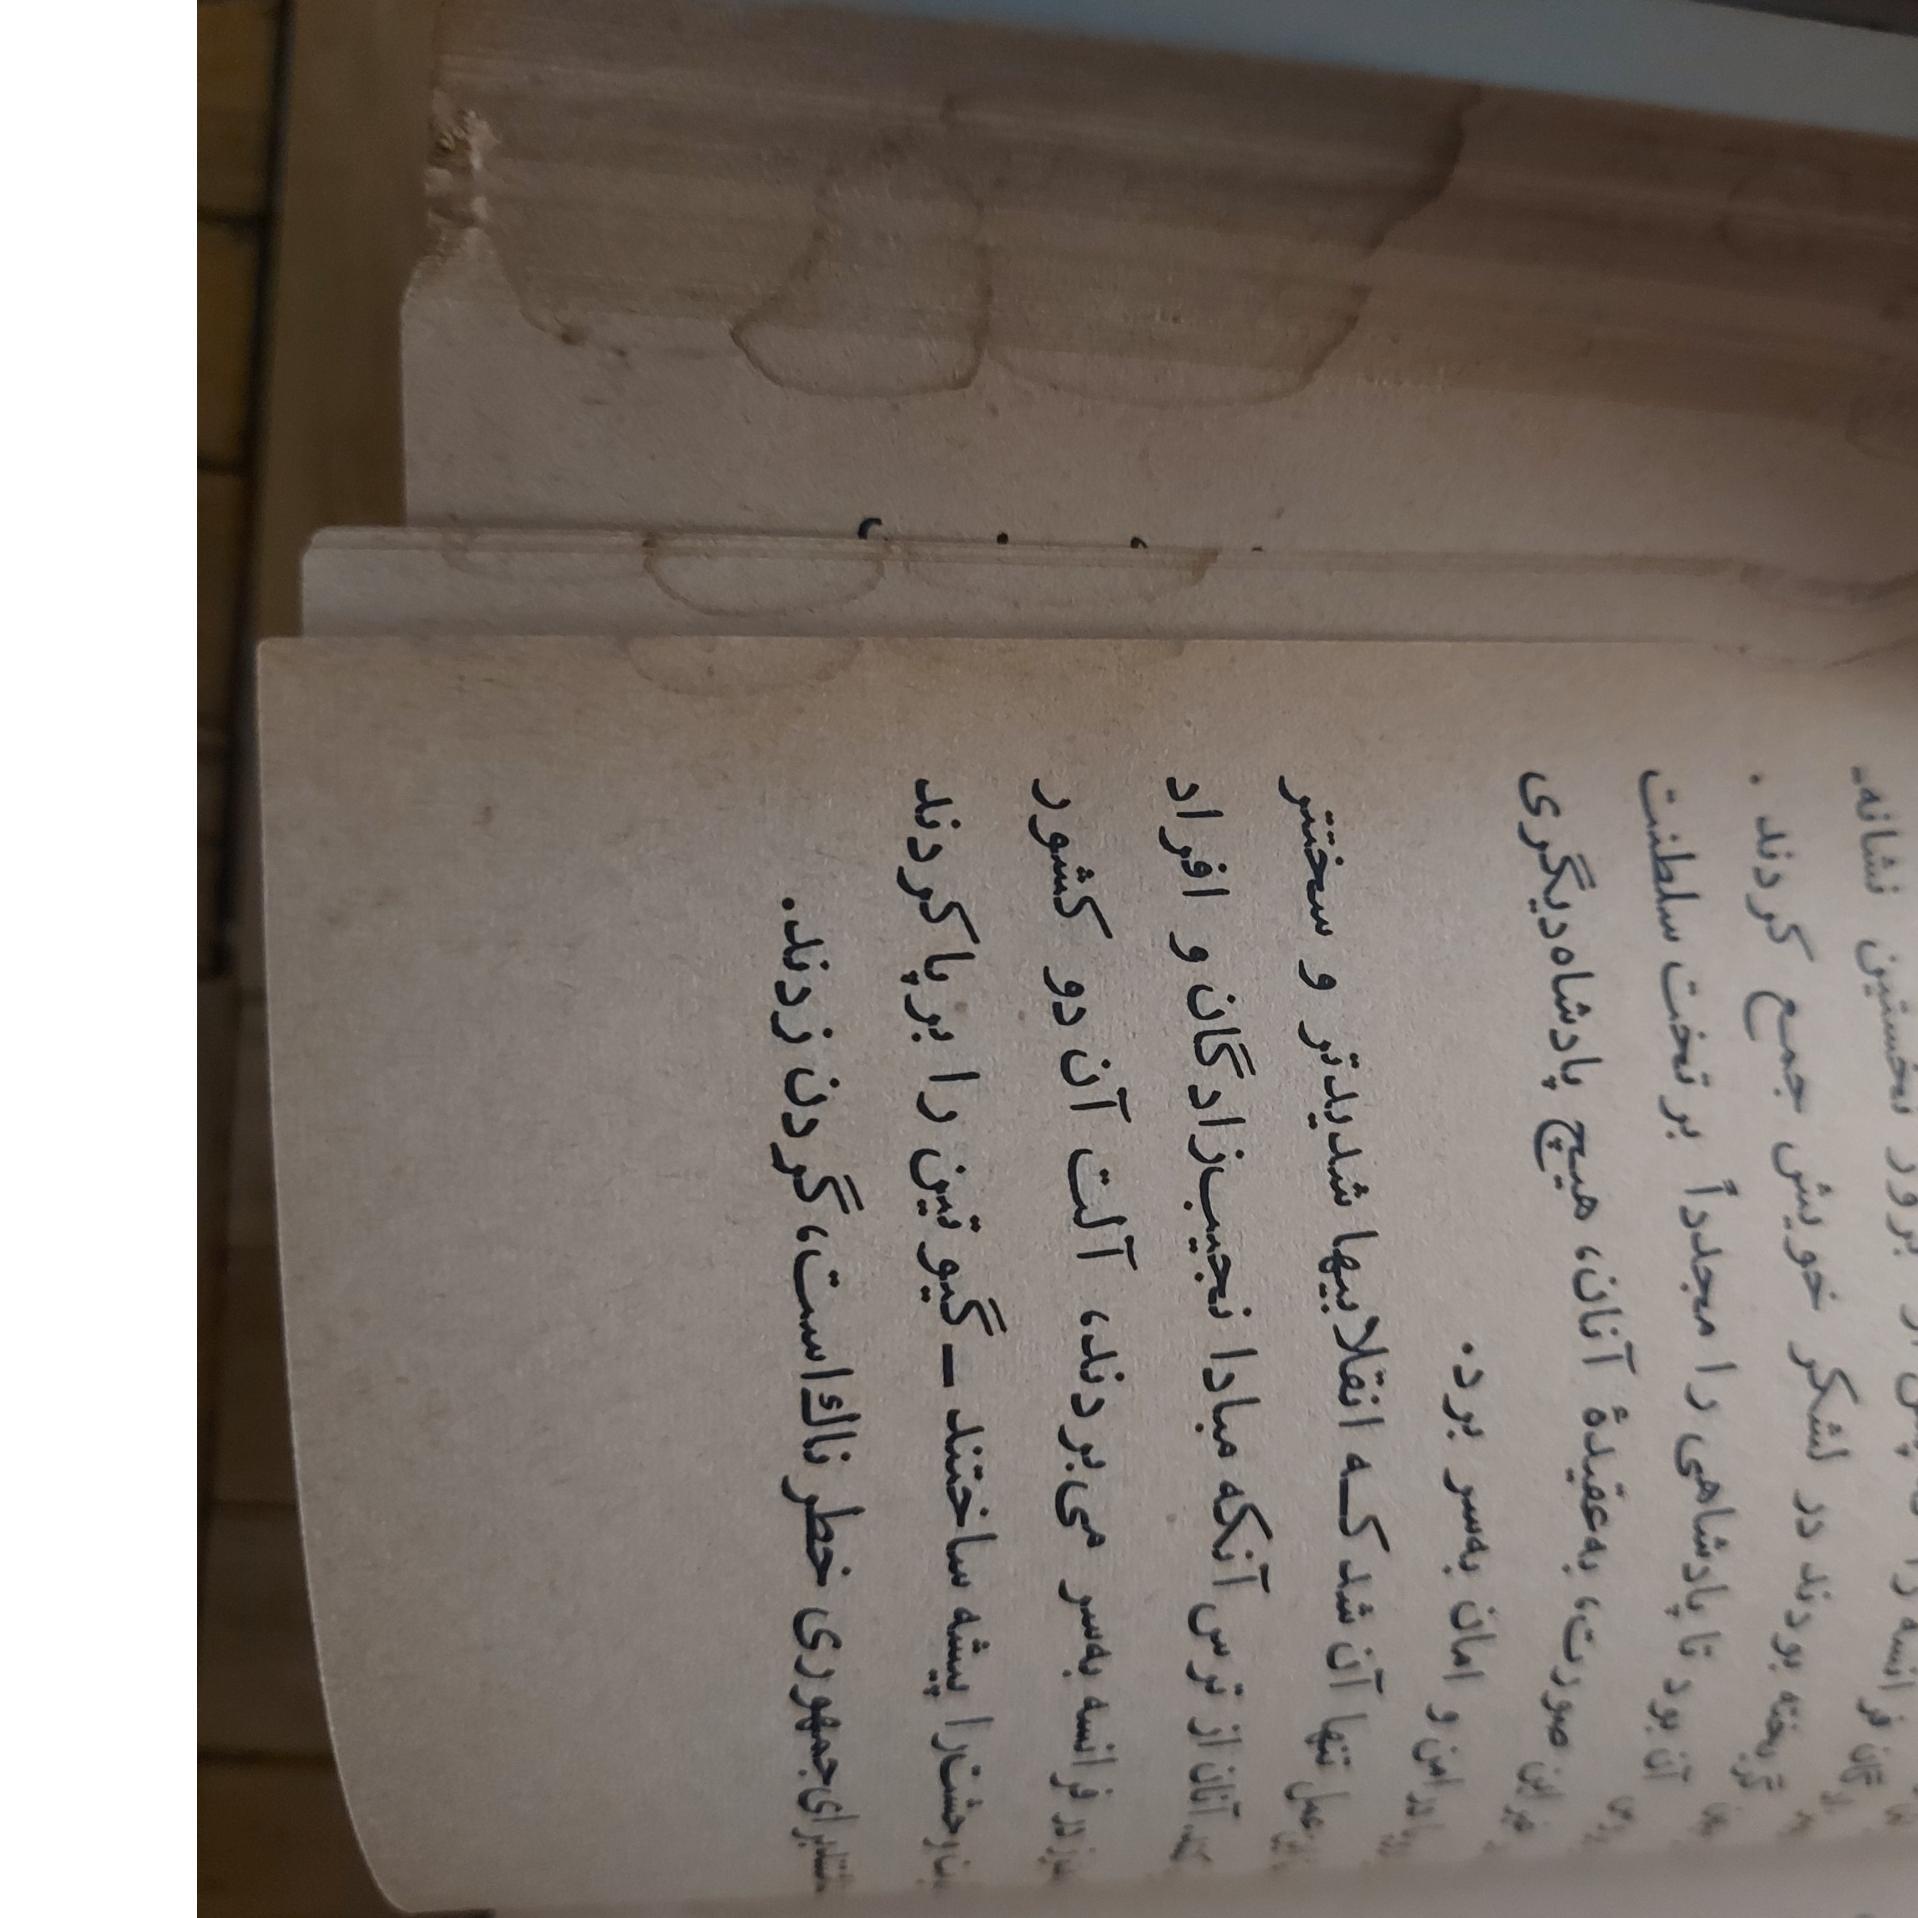 فرانسه را بروز نخستین نشانه‌ـ
گریخته بودند در لشکر خویش جمع کردند.
آن بود تا پادشاهی را مجدداً بر تخت سلطنت
این صورت، به‌عقیدهٔ آنان، هیچ پادشاه‌دیگری
در امن و امان به‌سر برد.
عمل تنها آن شد کـه انقلابیها شدیدتر و سختتر
آنان از ترس آنکه مبادا نجیب‌زادگان و افراد
در فرانسه به‌سر می‌بردند، آلت آن دو کشور
وحشت‌را پیشه ساختند ــ گیوتین را برپا کردند
برای جمهوری خطرناك است، گردن زدند.